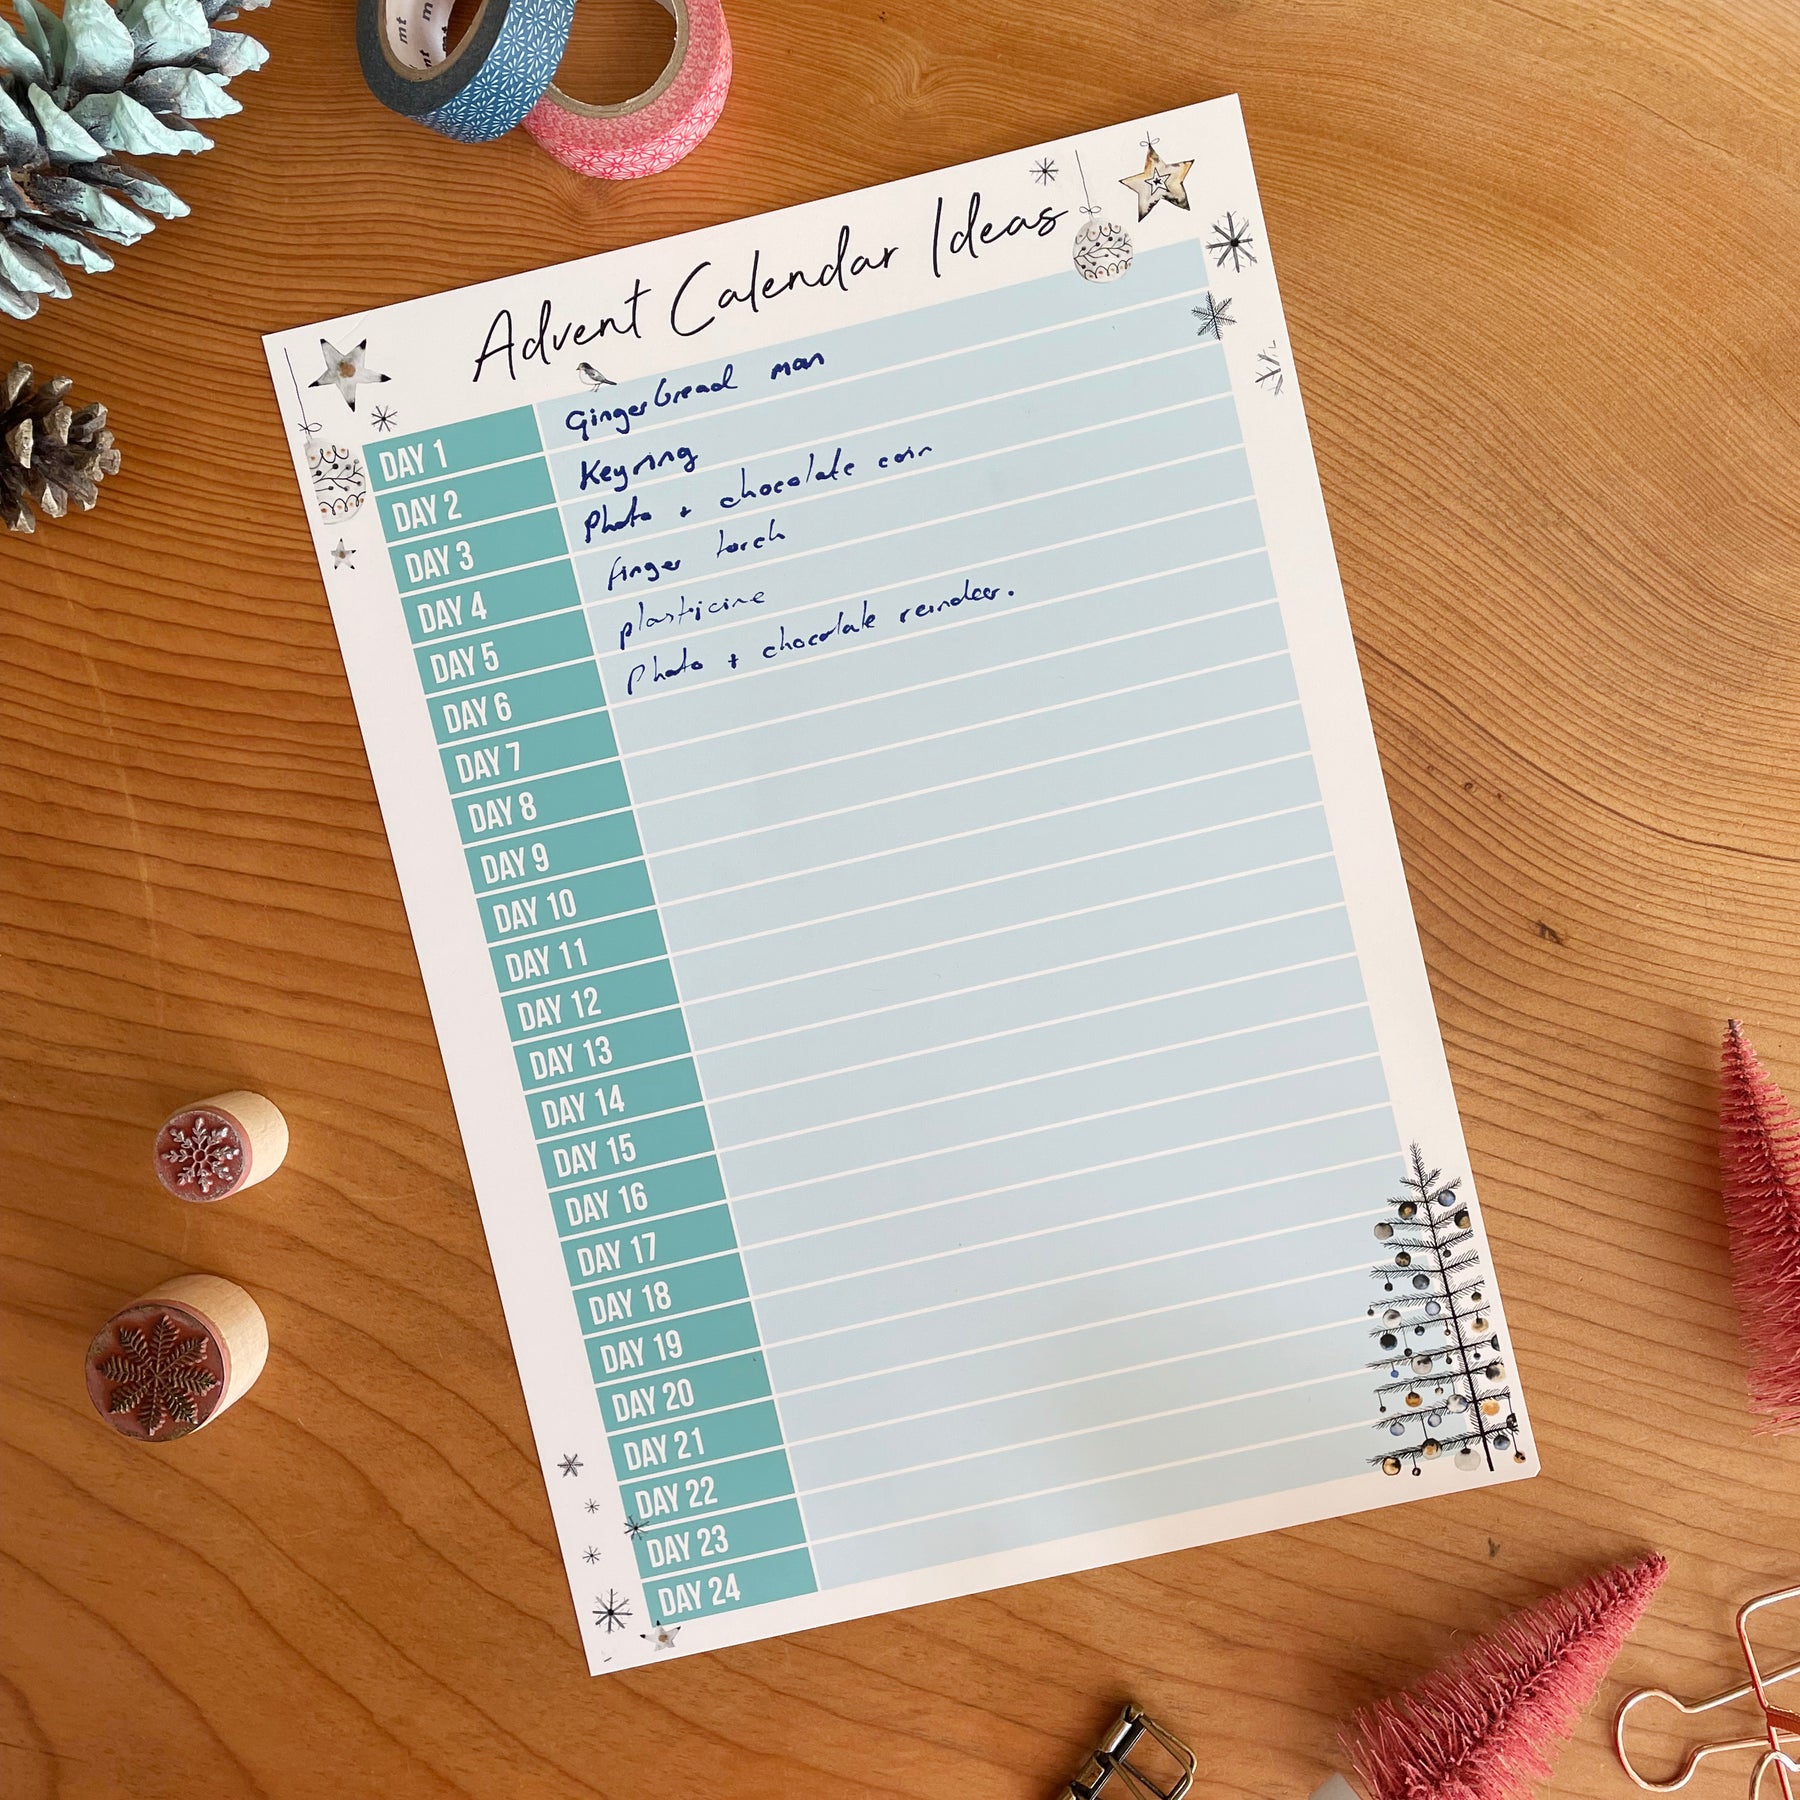 mt
mt
mt
Advent Calendar Ideas
DAY 1 Gingerbread man
DAY 2 Keyring
DAY 3 Photo + chocolate coin
DAY 4 finger torch
DAY 5 plasticine
DAY 6 Photo + chocolate reindeer.
DAY 7
DAY 8
DAY 9
DAY 10
DAY 11
DAY 12
DAY 13
DAY 14
DAY 15
DAY 16
DAY 17
DAY 18
DAY 19
DAY 20
DAY 21
DAY 22
DAY 23
DAY 24